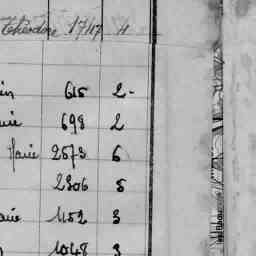 Théodore 1717 4
in 615 2-
rie 698 2
Marie 2573 6
2306 5
arie 1152 3
1048 3